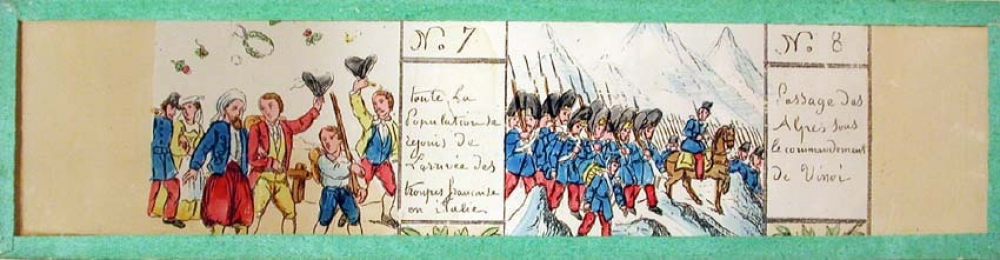 No. 7
toute La
Population se
rejouis de
L'arrivée des
troupes francaise
en italie
No. 8
Passage des
Alpes sous
le commandement
de Vinoi